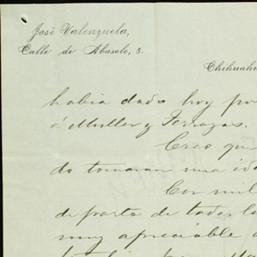 José Valenzuela,
Calle de Abasolo, 3.
Chihuahu
habia dado hoy por
á Muller y Terrazas.
Creo que
do tomaran una ide
Con mil
de parte de todos lo
muy apreciable